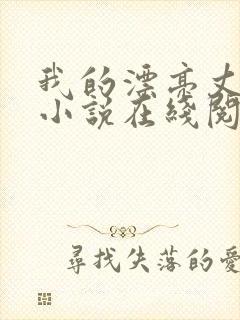 我的漂亮丈
小說在綫閱
尋找失落的愛